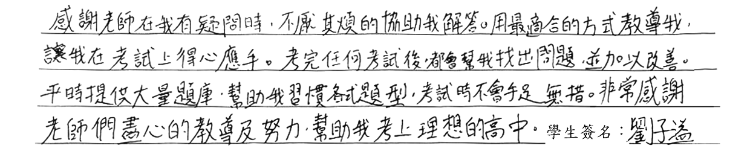 感謝老師在我有疑問時,不厭其煩的協助我解答。用最適合的方式教導我,
讓我在考試上得心應手。考完任何考試後,都會幫我找出問題,並加以改善。
平時提供大量題庫,幫助我習慣各式題型,考試時不會手足無措。非常感謝
老師們盡心的教導及努力,幫助我考上理想的高中。學生簽名:劉子溢